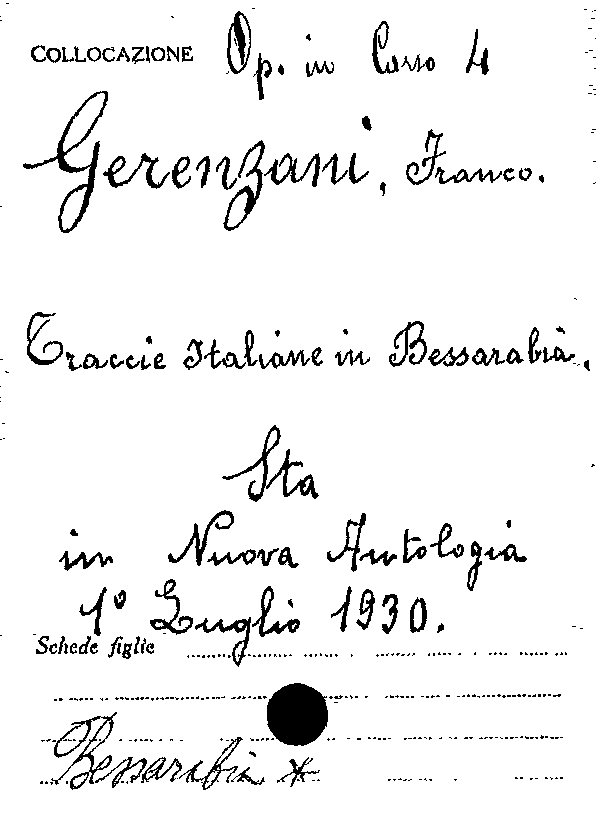 COLLOCAZIONE Op. in Corso 4
Gerenzani, Franco.
Traccie Italiane in Bessarabia.
Sta
in Nuova Antologia
1° Luglio 1930.
Schede figlie
Bessarabia *